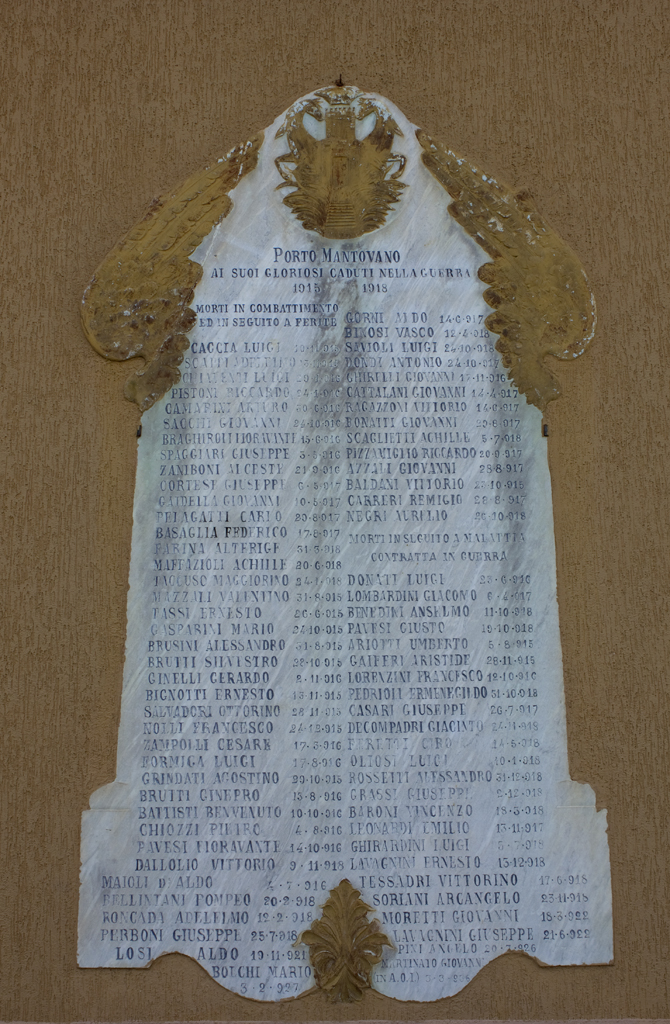 PORTO MANTOVANO
AI SUOI GLORIOSI CADUTI NELLA GUERRA
1915 1918
MORTI IN COMBATTIMENTO
ED IN SEGUITO A FERITE
CACCIA LUIGI
PISTONI RICCARDO
CAMATINI ARTURO
SACCHI GIOVANNI
BRAGHIROLI FIORAVANTE 15-6-916
SPAGGIARI GIUSEPPE
ZANIBONI ALCESTE 21-9-916
CORTESE GIUSEPPE
GARDELLA GIOVANNI 10-5-917
PELAGATTI CARLO 20-8-917
BASAGLIA FEDERICO 17-9-917
FARINA ALTERIGE 31-3-918
MAFFAZIOLI ACHILLE 20-6-918
PAOLUSO MAGGIORINO 24-1-918
MAZZALI VALENTINO 31-8-915
TASSI ERNESTO 26-6-915
GASPARINI MARIO 24-10-915
BRUSINI ALESSANDRO 31-8-915
BRUTTI SILVESTRO 22-10-915
GINELLI GERARDO 2-11-916
BIGNOTTI ERNESTO 13-11-915
SALVADORI OTTORINO 28-11-915
NOLLI FRANCESCO 24-12-915
ZAMPOLLI CESARE 17-5-916
FORMIGA LUIGI 17-8-916
GRINDATI AGOSTINO 20-10-915
BRUTTI GINEPRO 15-8-916
BATTISTI BENVENUTO 10-10-916
CHIOZZI PIETRO 4-8-916
PAVESI FIORAVANTE 14-10-916
DALLOLIO VITTORIO 9-11-918
MAIOLI ALDO 4-7-916
BELLINTANI POMPEO 20-2-918
RONCADA ADELELMO 12-2-918
PERBONI GIUSEPPE 25-7-918
LOSI ALDO 19-11-921
BOLCHI MARIO
3-2-927
GORNI ALDO 14-6-917
BINOSI VASCO 12-4-918
SAVIOLI LUIGI 24-10-918
DONDI ANTONIO 24-10-917
GHIRELLI GIOVANNI 17-11-916
CATTALANI GIOVANNI 14-4-917
RAGAZZONI VITTORIO 14-6-917
BONATTI GIOVANNI 20-8-917
SCAGLIETTI ACHILLE 5-7-918
PIZZAVIGLIO RICCARDO 20-9-917
AZZALI GIOVANNI 28-8-917
BALDANI VITTORIO 23-10-915
CARRERI REMIGIO 28-8-917
NEGRI AURELIO 26-10-918
MORTI IN SEGUITO A MALATTIA
CONTRATTA IN GUERRA
DONATI LUIGI 23-6-916
LOMBARDINI GIACOMO 6-4-917
BENEDINI ANSELMO 11-10-918
PAVESI GIUSTO 19-10-918
ARIOTTI UMBERTO 5-8-915
GAIFERI ARISTIDE 28-11-915
LORENZINI FRANCESCO 12-10-916
PEDRIOLI ERMENEGILDO 31-10-918
CASARI GIUSEPPE 26-7-917
DECOMPADRI GIACINTO 24-11-918
FERETTI CIRO 14-5-918
OLIOSI LUIGI 10-1-918
ROSSETTI ALESSANDRO 31-12-918
GRASSI GIUSEPPE 2-12-918
BARONI VINCENZO 18-3-918
LEONARDI EMILIO 13-11-917
GHIRARDINI LUIGI
LAVAGNINI ERNESTO 13-12-918
TESSADRI VITTORINO 17-6-918
SORIANI ARCANGELO 23-11-918
MORETTI GIOVANNI 18-3-922
LAVAGNINI GIUSEPPE 21-6-922
ANGELO
MARTINATO GIOVANNI
(IN A.O.I.)